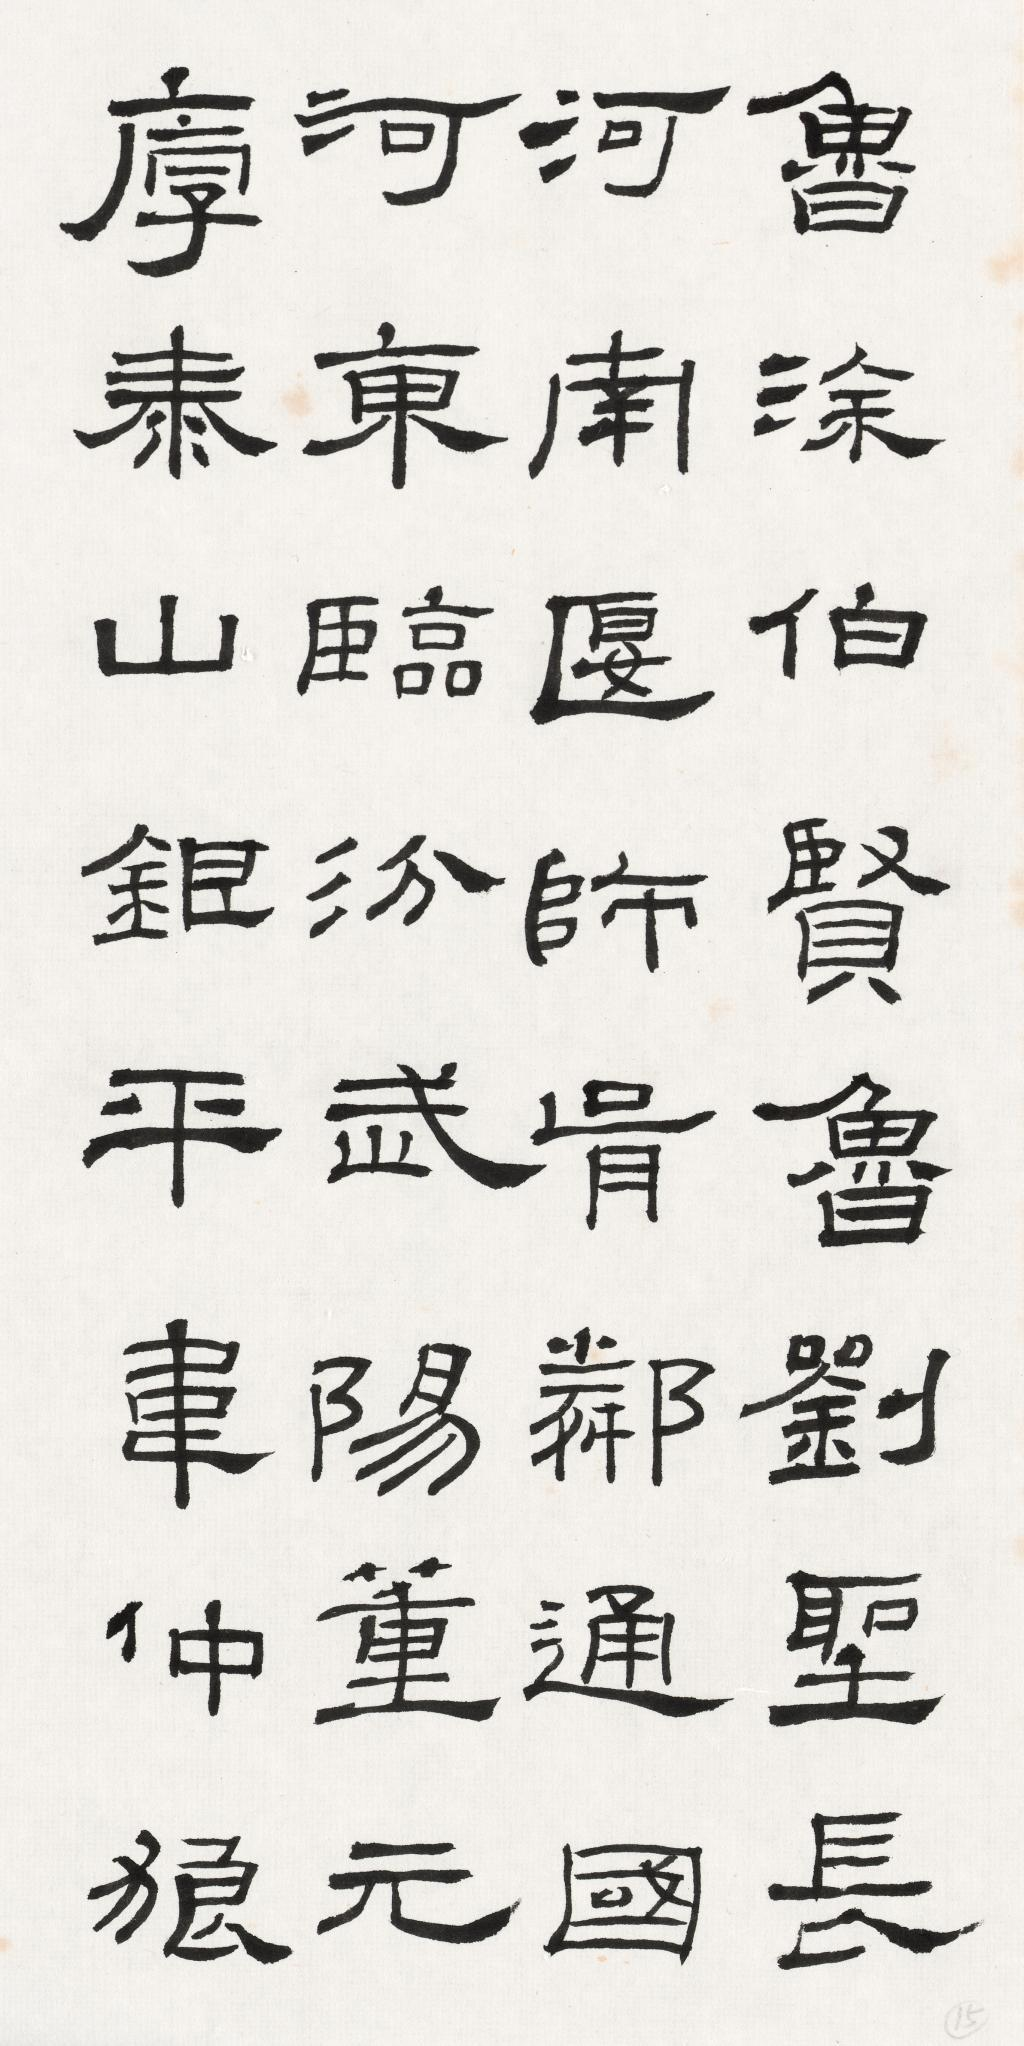 魯涂伯賢魯劉聖長
河南匽師胥鄰通國
河東臨汾武陽董元
厚泰山鉅平韋仲狼
15